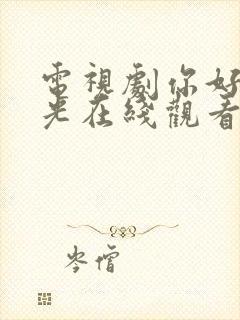 電視劇你好
光在綫觀看
岑僧